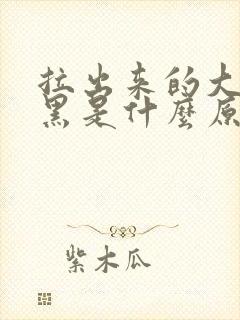 拉出来的大
黑是什麼原
紫木瓜